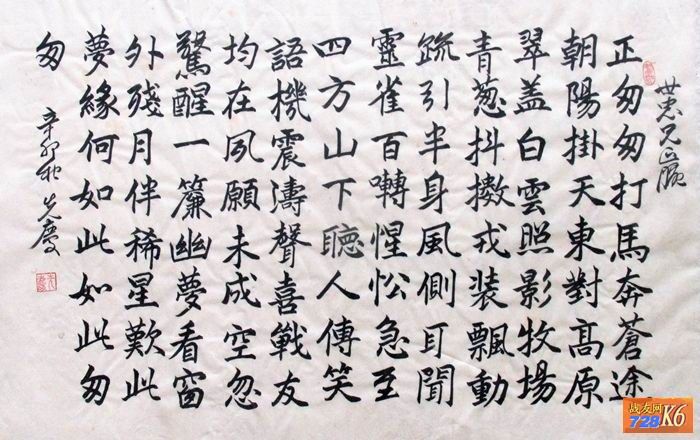 世忠兄正
正匆匆打馬奔蒼途
朝陽掛天東對高原
翠盖白雲照影牧場
青葱抖擻戎装飄動
疏引半身風側耳聞
靈雀百囀惺忪急至
四方山下聽人傳笑
語機震濤聲喜戰友
均在夙願未成空忽
驚醒一簾幽夢看窗
外殘月伴稀星歎此
夢緣何如此如此匆
匆
辛卯秋
战友网
728 K6